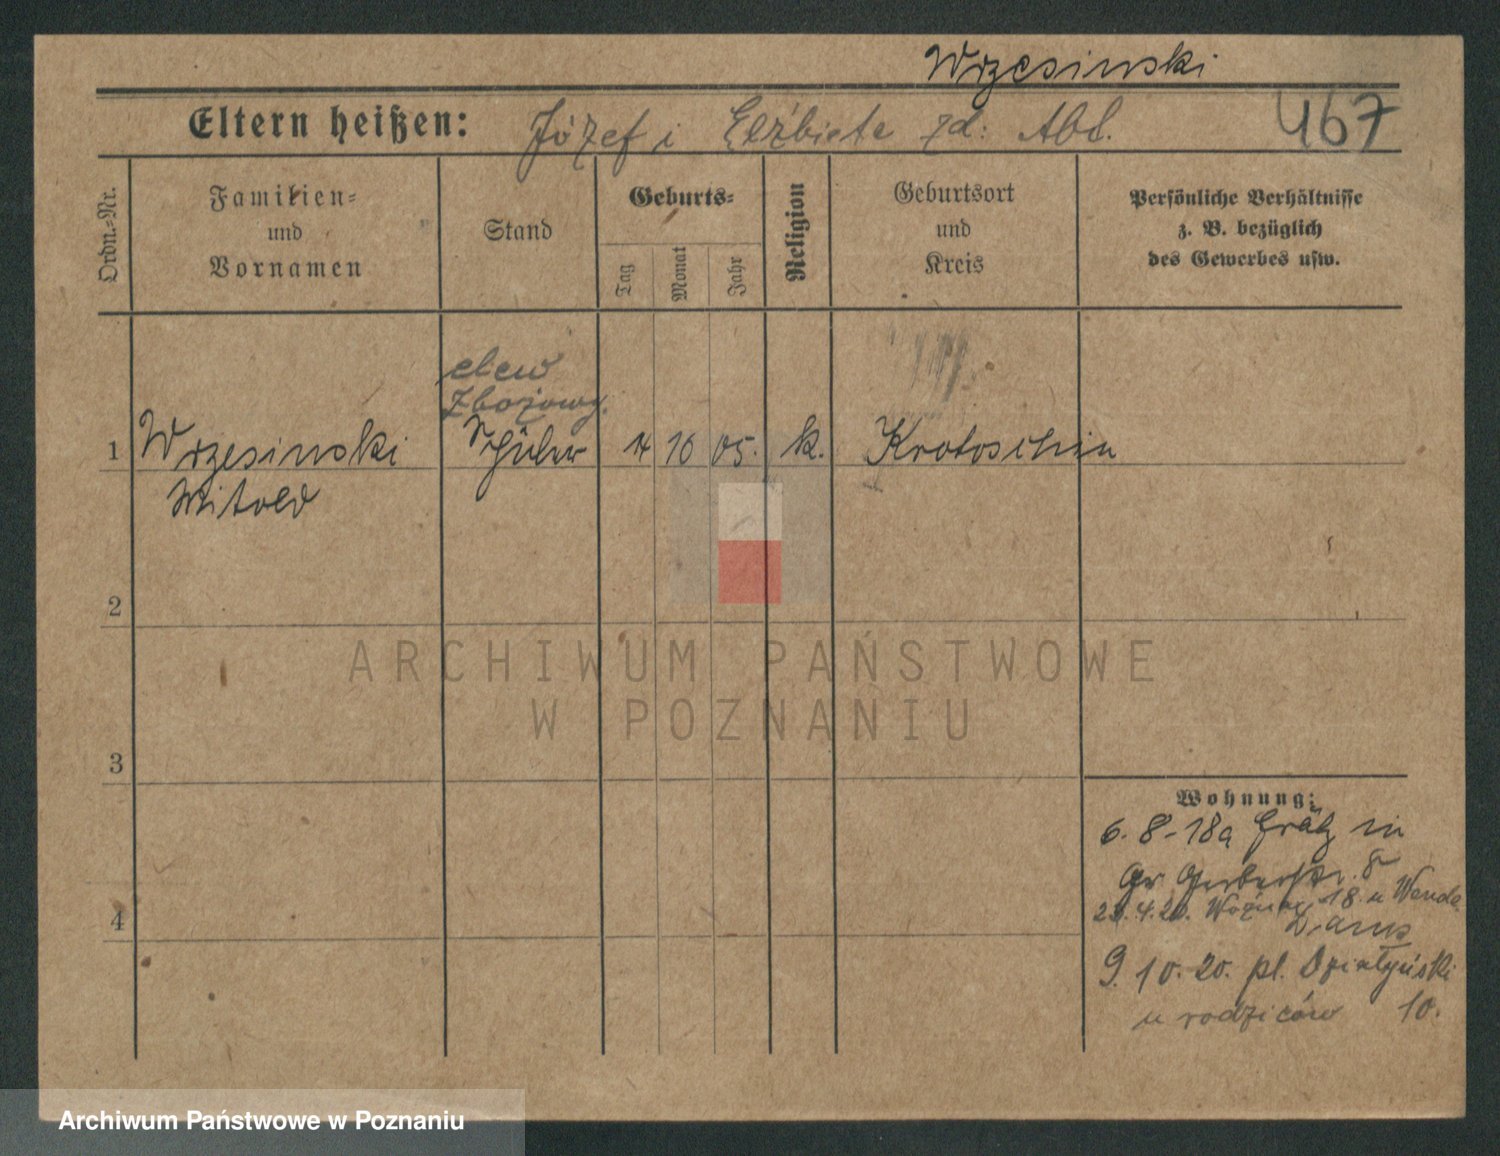 Wrzesinski
Eltern heißen: Józef i Elżbieta zd: Abl. 467
Ordn.-Nr.
Familien-
und
Vornamen
Stand
Geburts-
Tag
Monat
Jahr
Religion
Geburtsort
und
Kreis
Persönliche Verhältnisse
z. B. bezüglich
des Gewerbes usw.
elew
zbożowy.
1 Wrzesinski Schüler 14 10 05. k. Krotoschin
Witold
2
ARCHIWUM PAŃSTWOWE
W POZNANIU
3
Wohnung:
6. 8. 18 Grätz in
Gr. Gerberstr. 8
4
4. 20. 18. u
9. 10. 20. pl. Działyński
u rodziców 10.
Archiwum Państwowe w Poznaniu